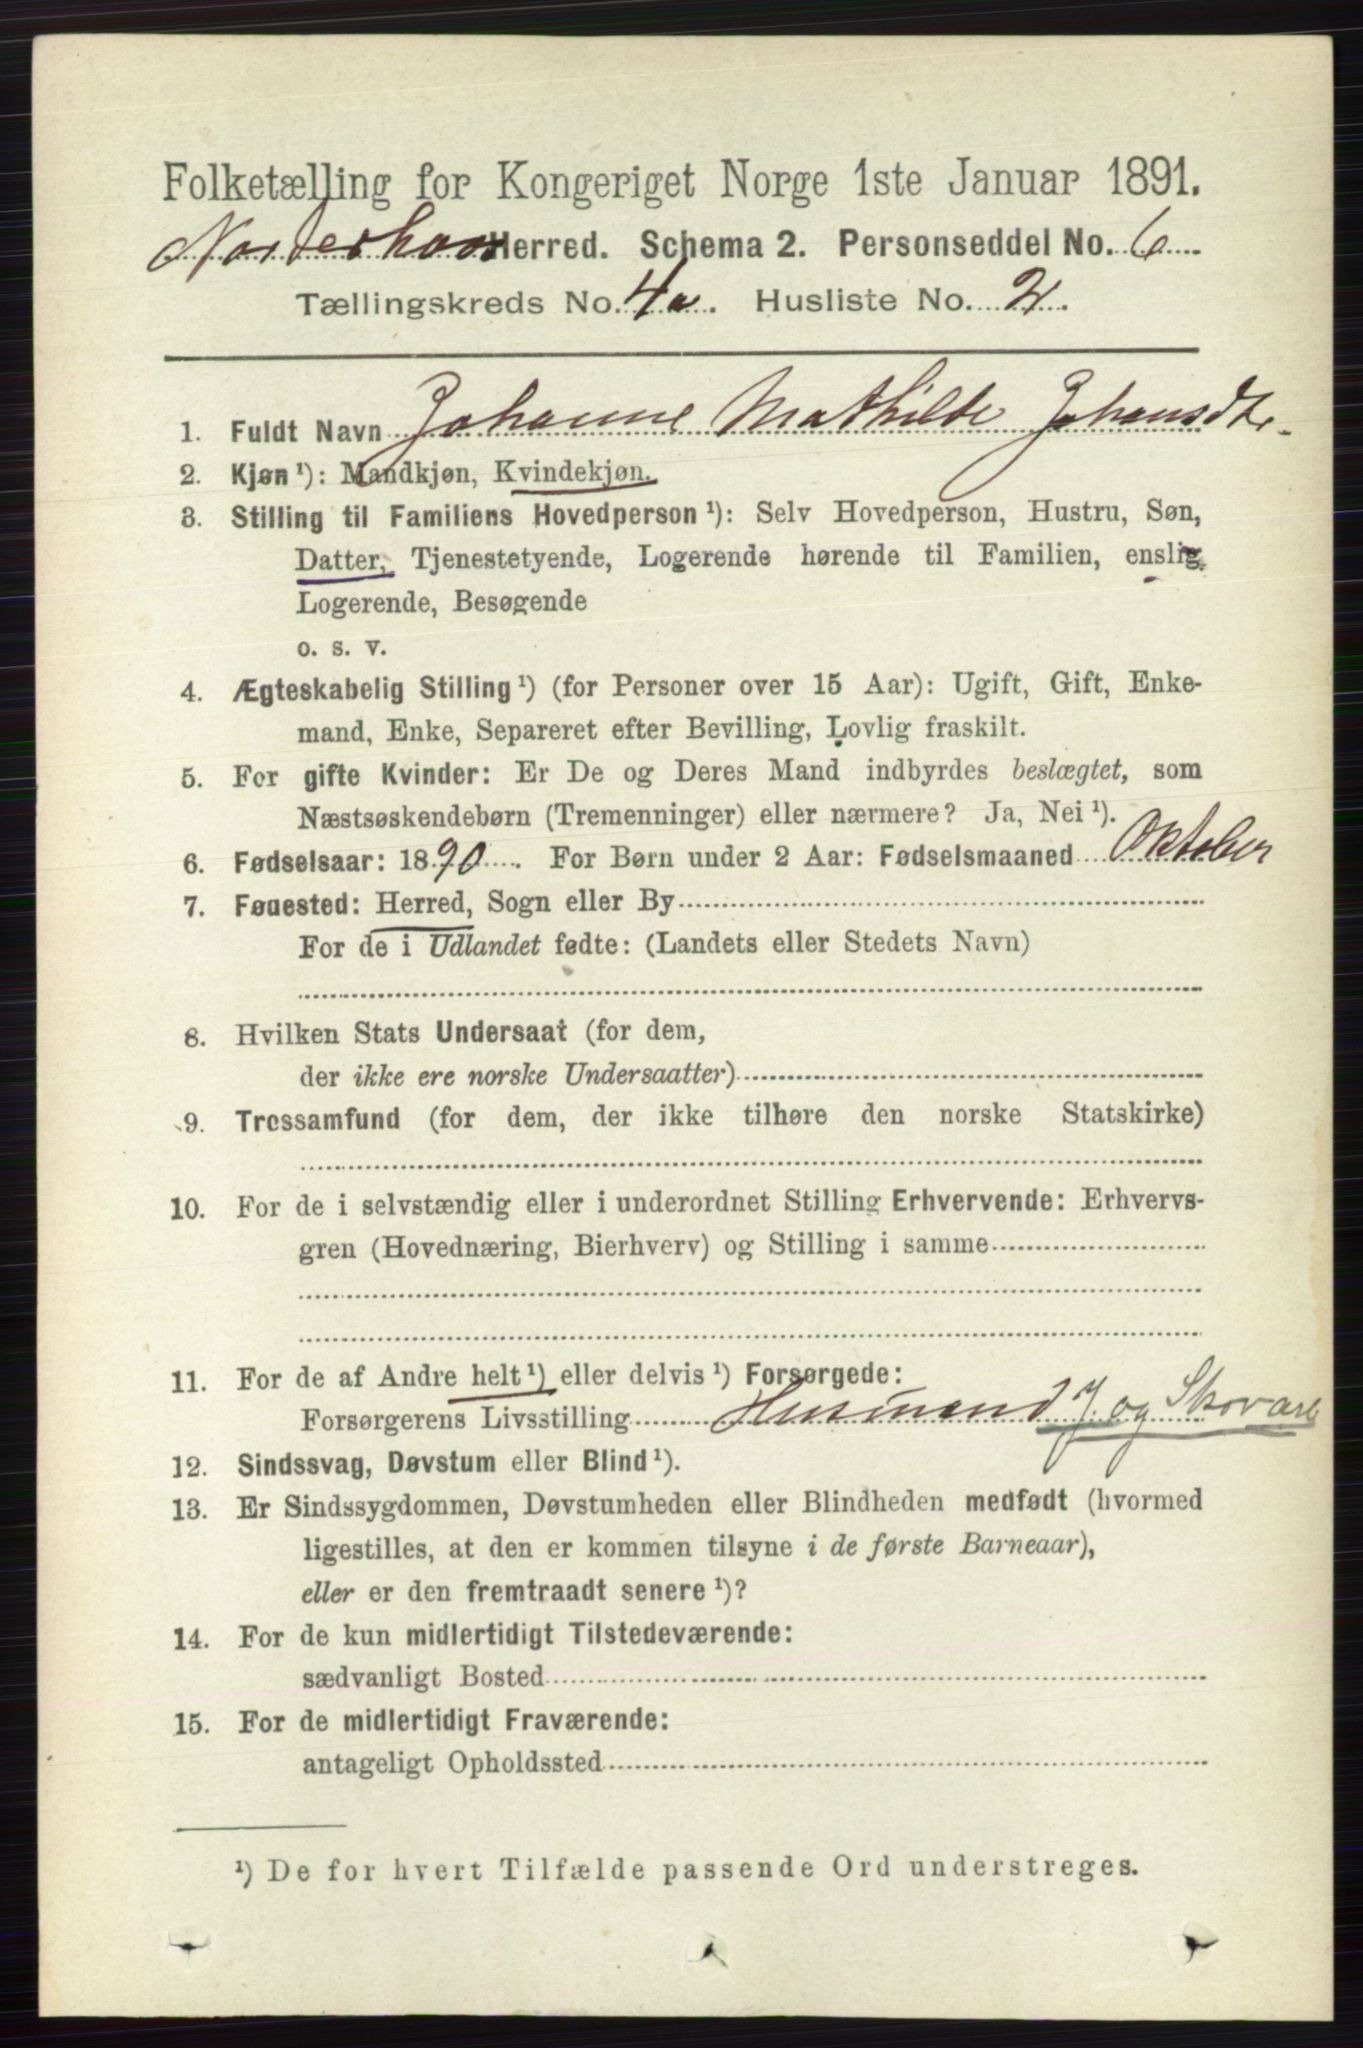 Folketælling for Kongeriget Norge 1ste Januar 1891.
Norderhov Herred. Schema 2. Personseddel No. 6
Tællingskreds No. 4a. Husliste No. 2.
1. Fuldt Navn Johanne Mathilde Johansdtr.
2. Kjøn ¹): Mandkjøn, Kvindekjøn.
3. Stilling til Familiens Hovedperson ¹): Selv Hovedperson, Hustru, Søn,
Datter, Tjenestetyende, Logerende hørende til Familien, enslig
Logerende, Besøgende
o. s. v.
4. Ægteskabelig Stilling ¹) (for Personer over 15 Aar): Ugift, Gift, Enke-
mand, Enke, Separeret efter Bevilling, Lovlig fraskilt.
5. For gifte Kvinder: Er De og Deres Mand indbyrdes beslægtet, som
Næstsøskendebørn (Tremenninger) eller nærmere? Ja, Nei ¹).
6. Fødselsaar: 1890. For Børn under 2 Aar: Fødselsmaaned Oktober
7. Føuested: Herred, Sogn eller By
For de i Udlandet fødte: (Landets eller Stedets Navn)
8. Hvilken Stats Undersaat (for dem,
der ikke ere norske Undersaatter)
9. Trossamfund (for dem, der ikke tilhøre den norske Statskirke)
10. For de i selvstændig eller i underordnet Stilling Erhvervende: Erhvervs-
gren (Hovednæring, Bierhverv) og Stilling i samme
11. For de af Andre helt ¹) eller delvis ¹) Forsørgede:
Forsørgerens Livsstilling Husmand J. og Skovarb
12. Sindssvag, Døvstum eller Blind ¹).
13. Er Sindssygdommen, Døvstumheden eller Blindheden medfødt (hvormed
ligestilles, at den er kommen tilsyne i de første Barneaar),
eller er den fremtraadt senere ¹)?
14. For de kun midlertidigt Tilstedeværende:
sædvanligt Bosted
15. For de midlertidigt Fraværende:
antageligt Opholdssted
¹) De for hvert Tilfælde passende Ord understreges.